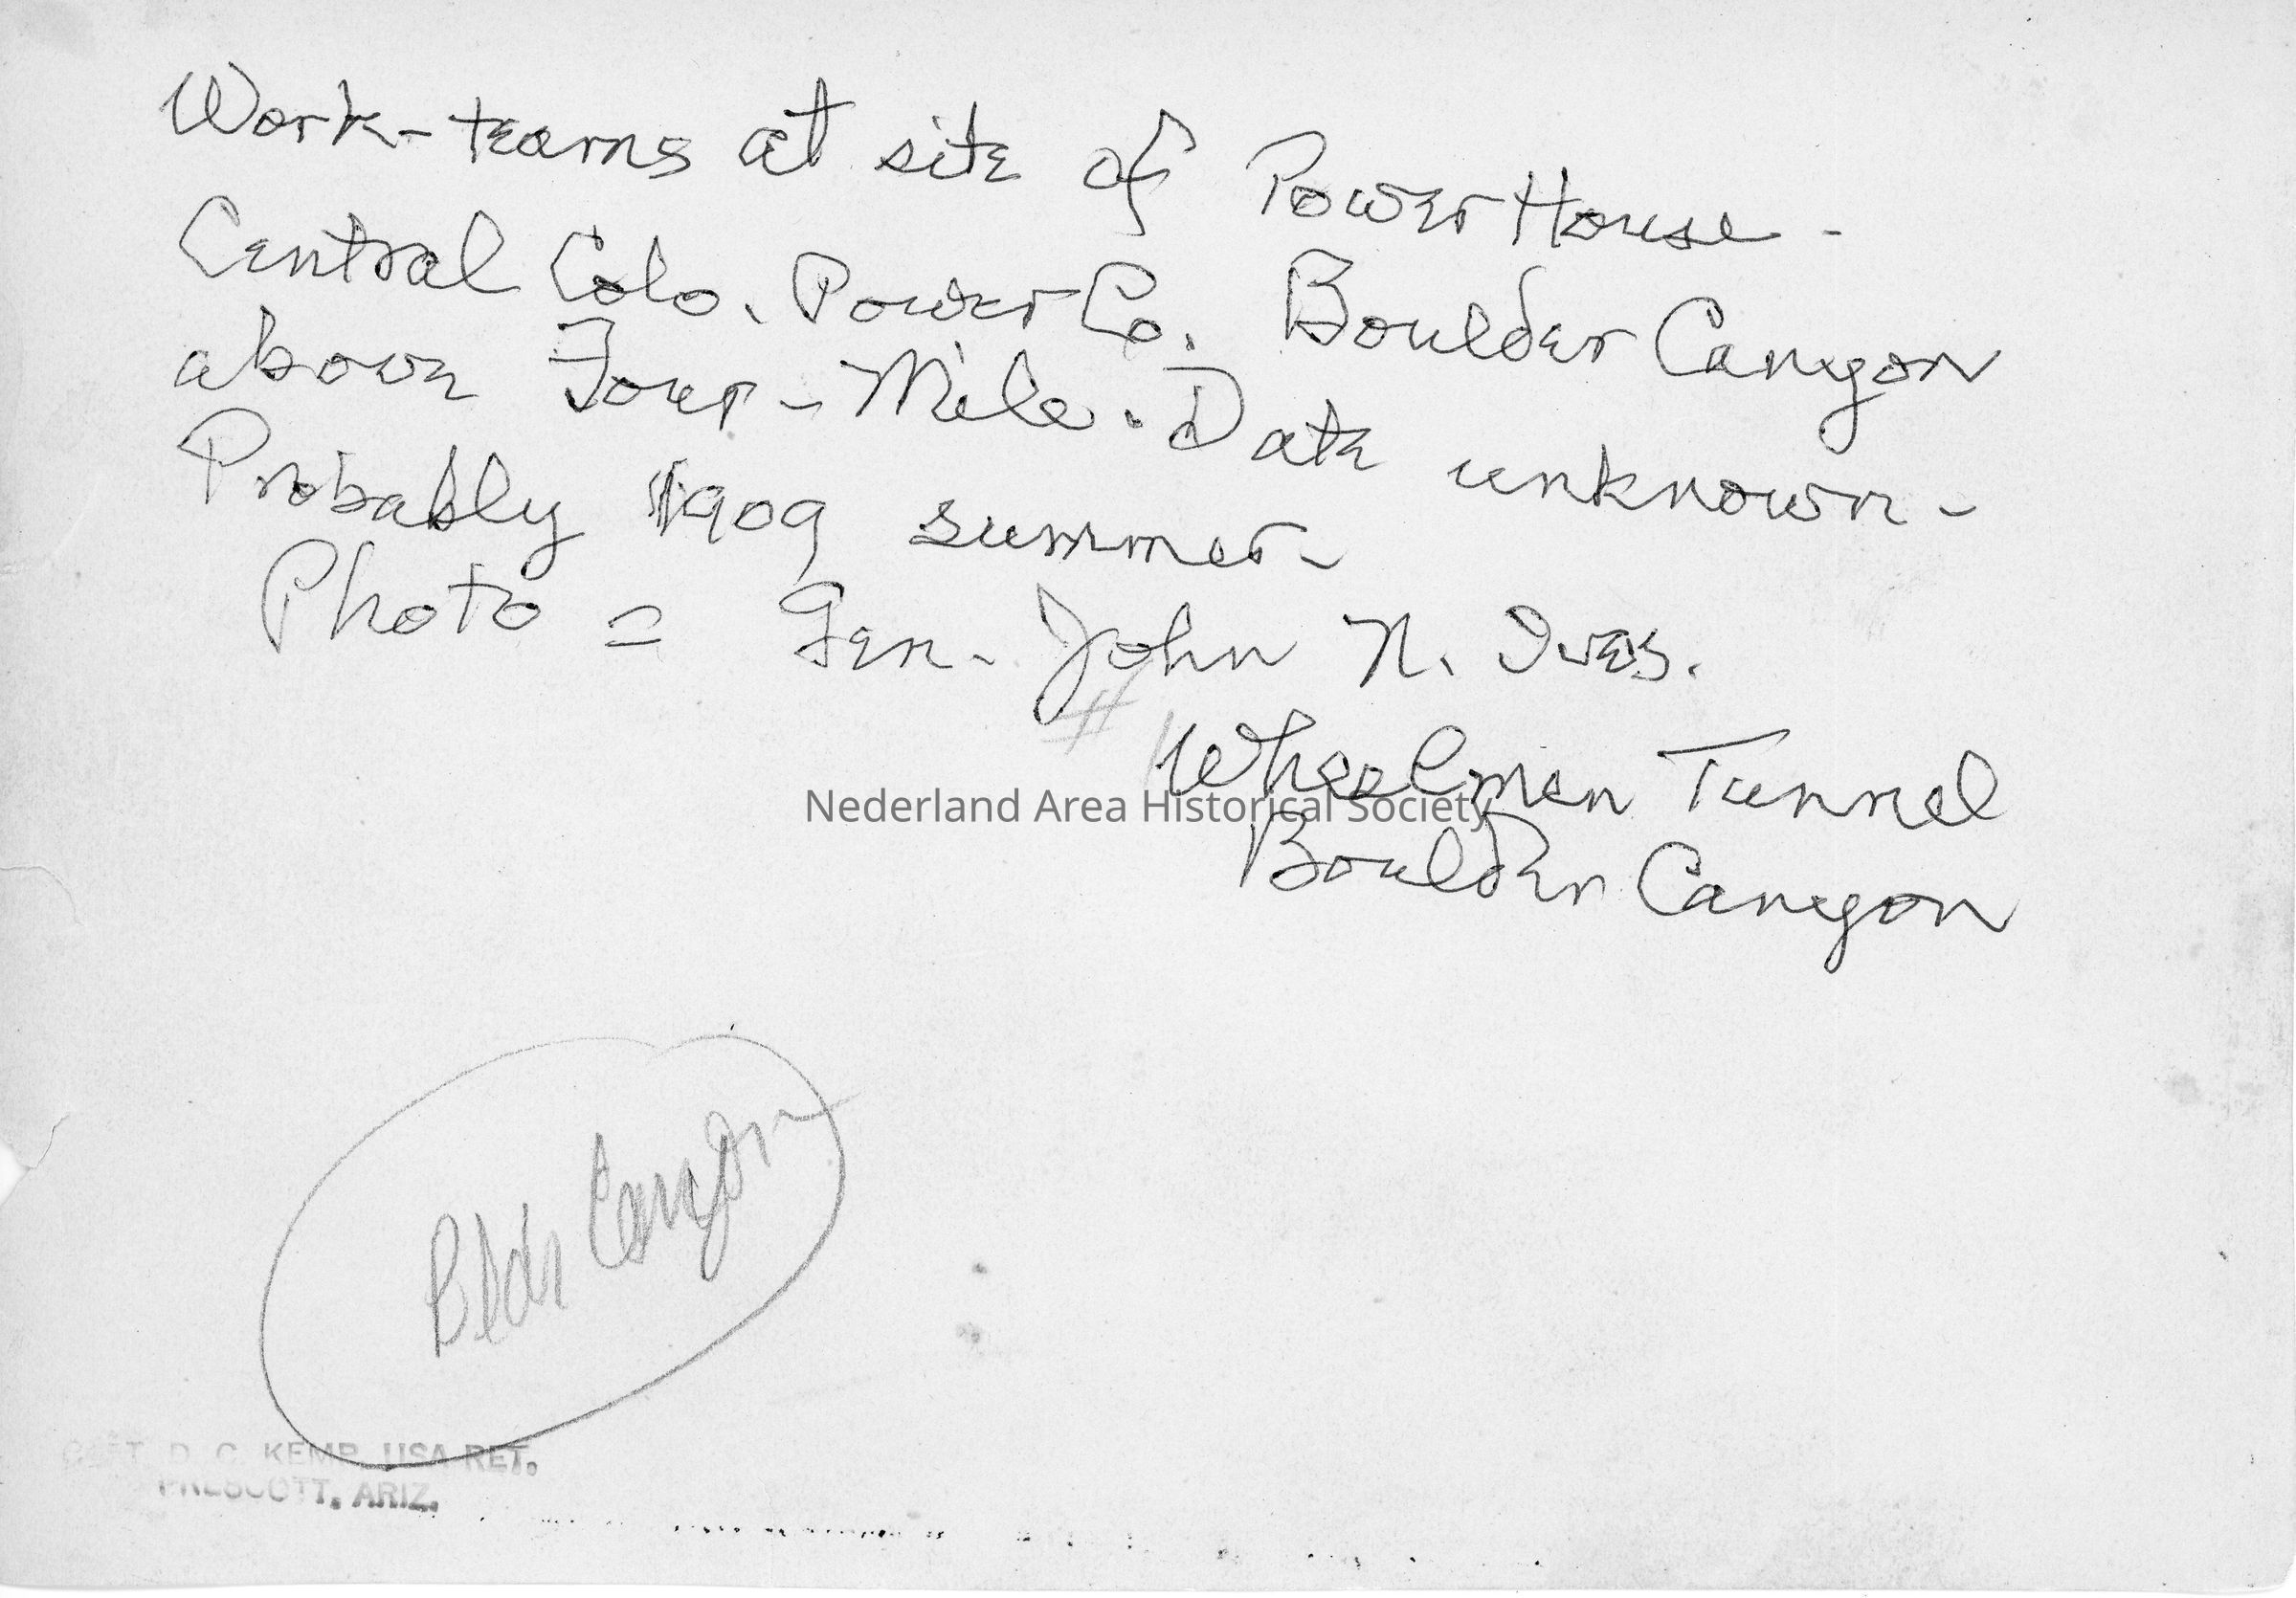 Work-teams at site of Power House -
Central Colo. Power Co. Boulder Canyon
above Four-Mile. Date unknown -
Probably 1909 summer-
Photo = Gen. John N. Ives.
#
Wheelmen Tunnel
Nederland Area Historical Society
Boulder Canyon
Bldr Canyon
D. C. KEMP, USA RET.
PRESCOTT, ARIZ.